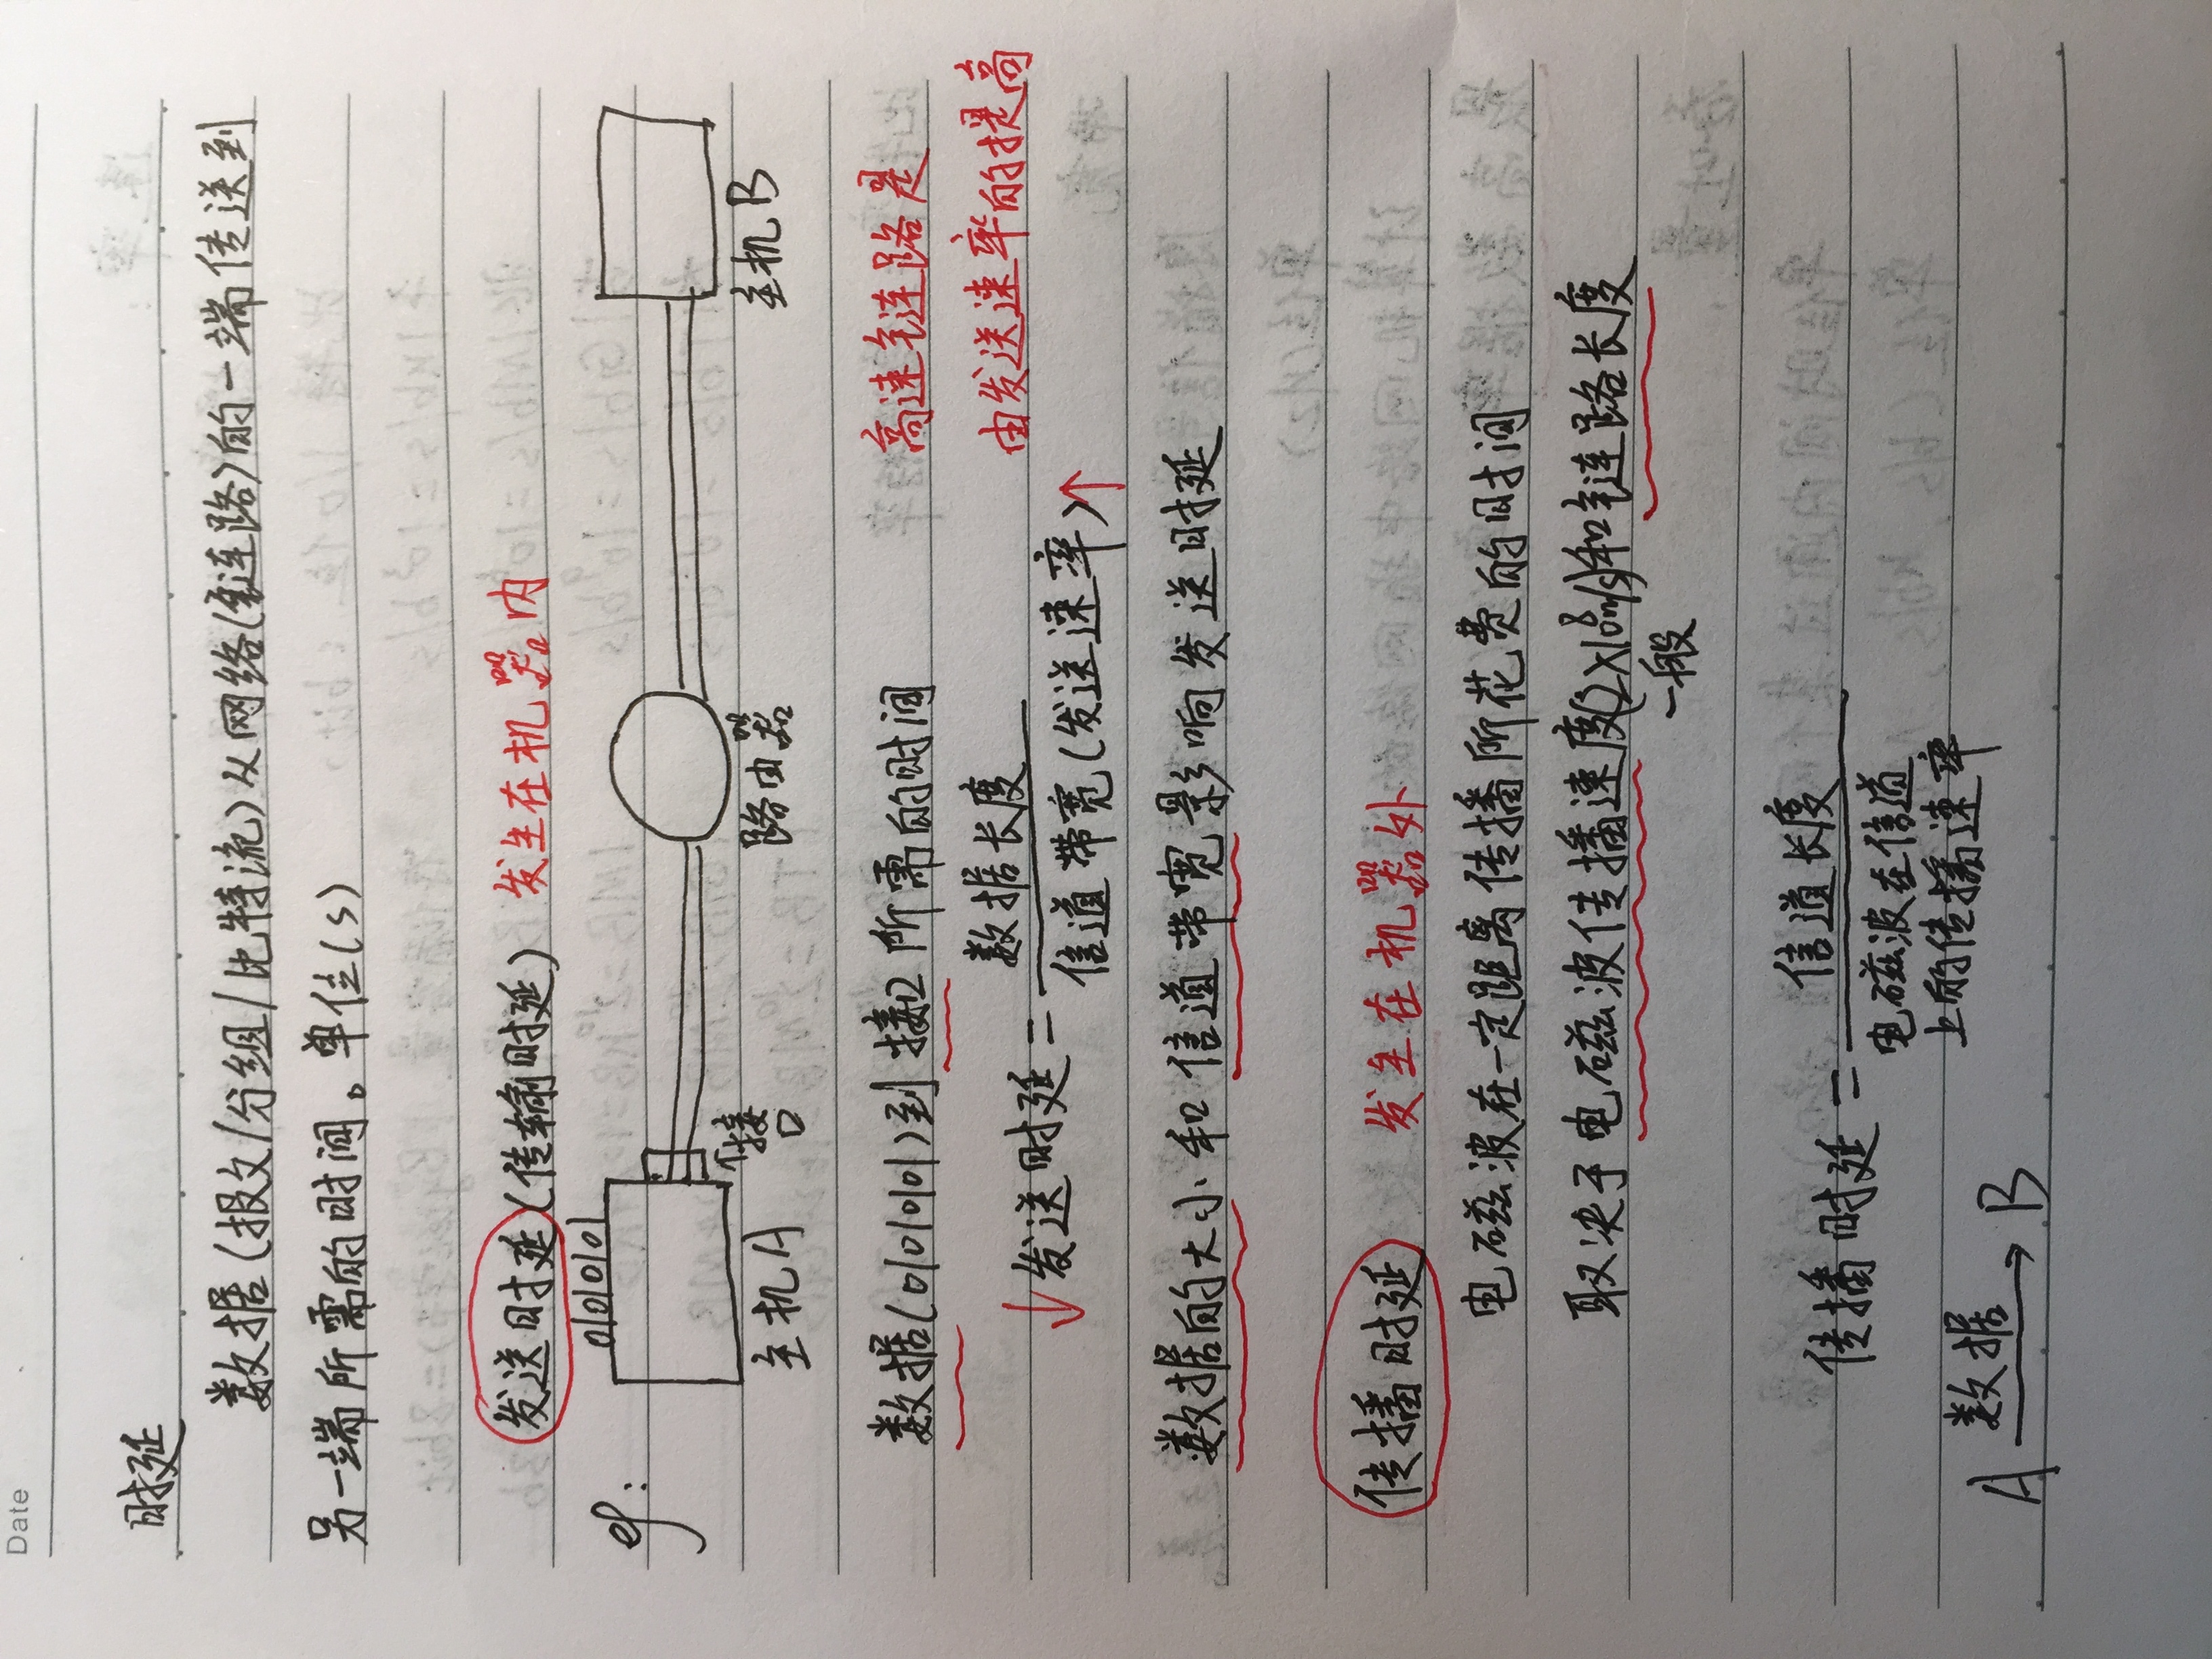 Date
时延
数据(报文/分组/比特流)从网络(链路)的一端传送到
另一端所需的时间。单位(s)
发送时延(传输时延) 发生在机器内
01010101
eg:
主机A
↑接口
路由器
主机B
数据(010101)到接口所需的时间
高速链路是
由发送速率的提高
↓发送时延=数据长度/信道带宽(发送速率)↑
数据的大小和信道带宽影响发送时延
传播时延 发生在机器外
电磁波在一定距离传播所花费的时间
取决于电磁波传播速度(2×10⁸m/s)和链路长度
一般
传播时延=信道长度/电磁波在信道
上的传播速率
A 数据→ B